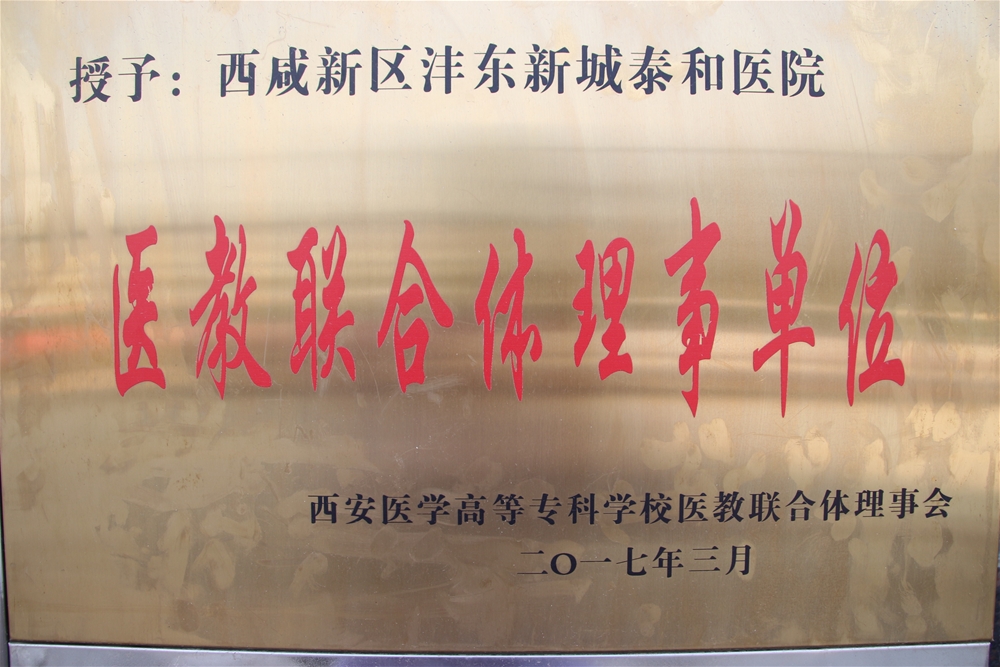 授予：西咸新区沣东新城泰和医院
医教联合体理事单位
西安医学高等专科学校医教联合体理事会
二〇一七年三月